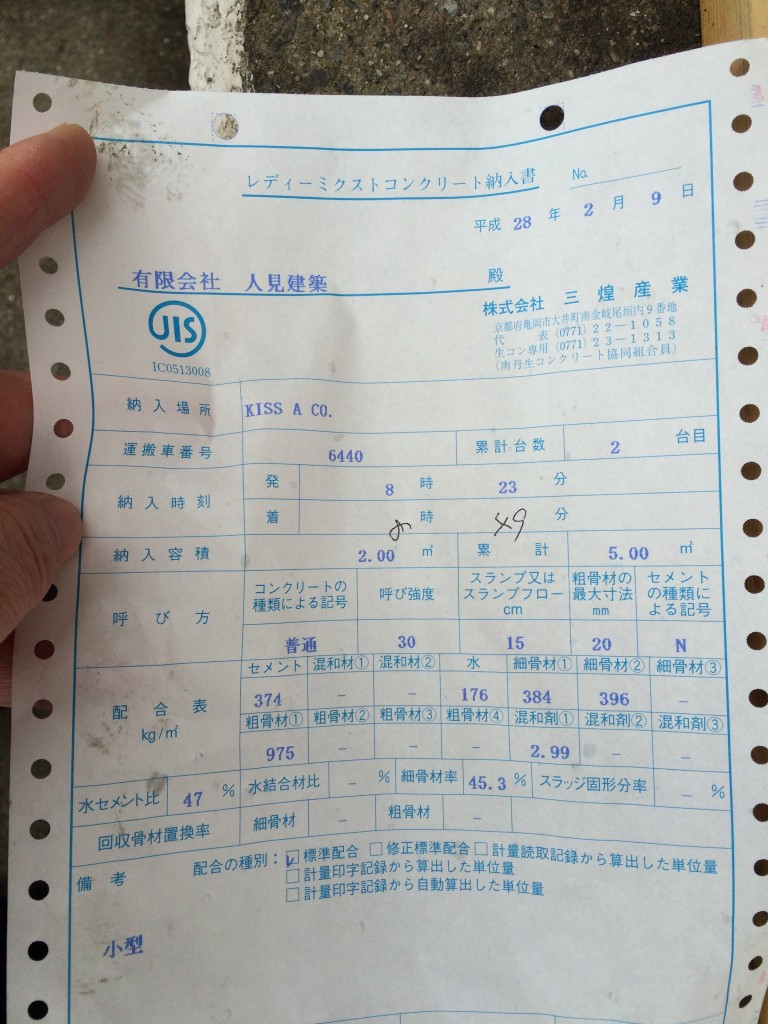 レディーミクストコンクリート納入書
No
平成 28 年 2 月 9 日
有限会社 人見建築 殿
JIS
IC0513008
株式会社 三煌産業
京都府亀岡市大井町南金岐尾垣内9番地
代 表 (0771) 22-1058
生コン専用 (0771) 23-1313
(南丹生コンクリート協同組合員)
納入場所 KISS A CO.
運搬車番号 6440 累計台数 2 台目
納入時刻 発 8 時 23 分
着 時 49 分
納入容積 2.00 ㎥ 累計 5.00 ㎥
呼び方 コンクリートの種類による記号 呼び強度 スランプ又はスランプフロー cm 粗骨材の最大寸法 mm セメントの種類による記号
普通 30 15 20 N
配合表 kg/㎥
セメント 混和材① 混和材② 水 細骨材① 細骨材② 細骨材③
374 - - 176 384 396 -
粗骨材① 粗骨材② 粗骨材③ 粗骨材④ 混和剤① 混和剤② 混和剤③
975 - - - 2.99 - -
水セメント比 47 % 水結合材比 - % 細骨材率 45.3 % スラッジ固形分率 - %
回収骨材置換率 細骨材 - 粗骨材 -
備考 配合の種別: ☑標準配合 □修正標準配合 □計量読取記録から算出した単位量
□計量印字記録から算出した単位量
□計量印字記録から自動算出した単位量
小型